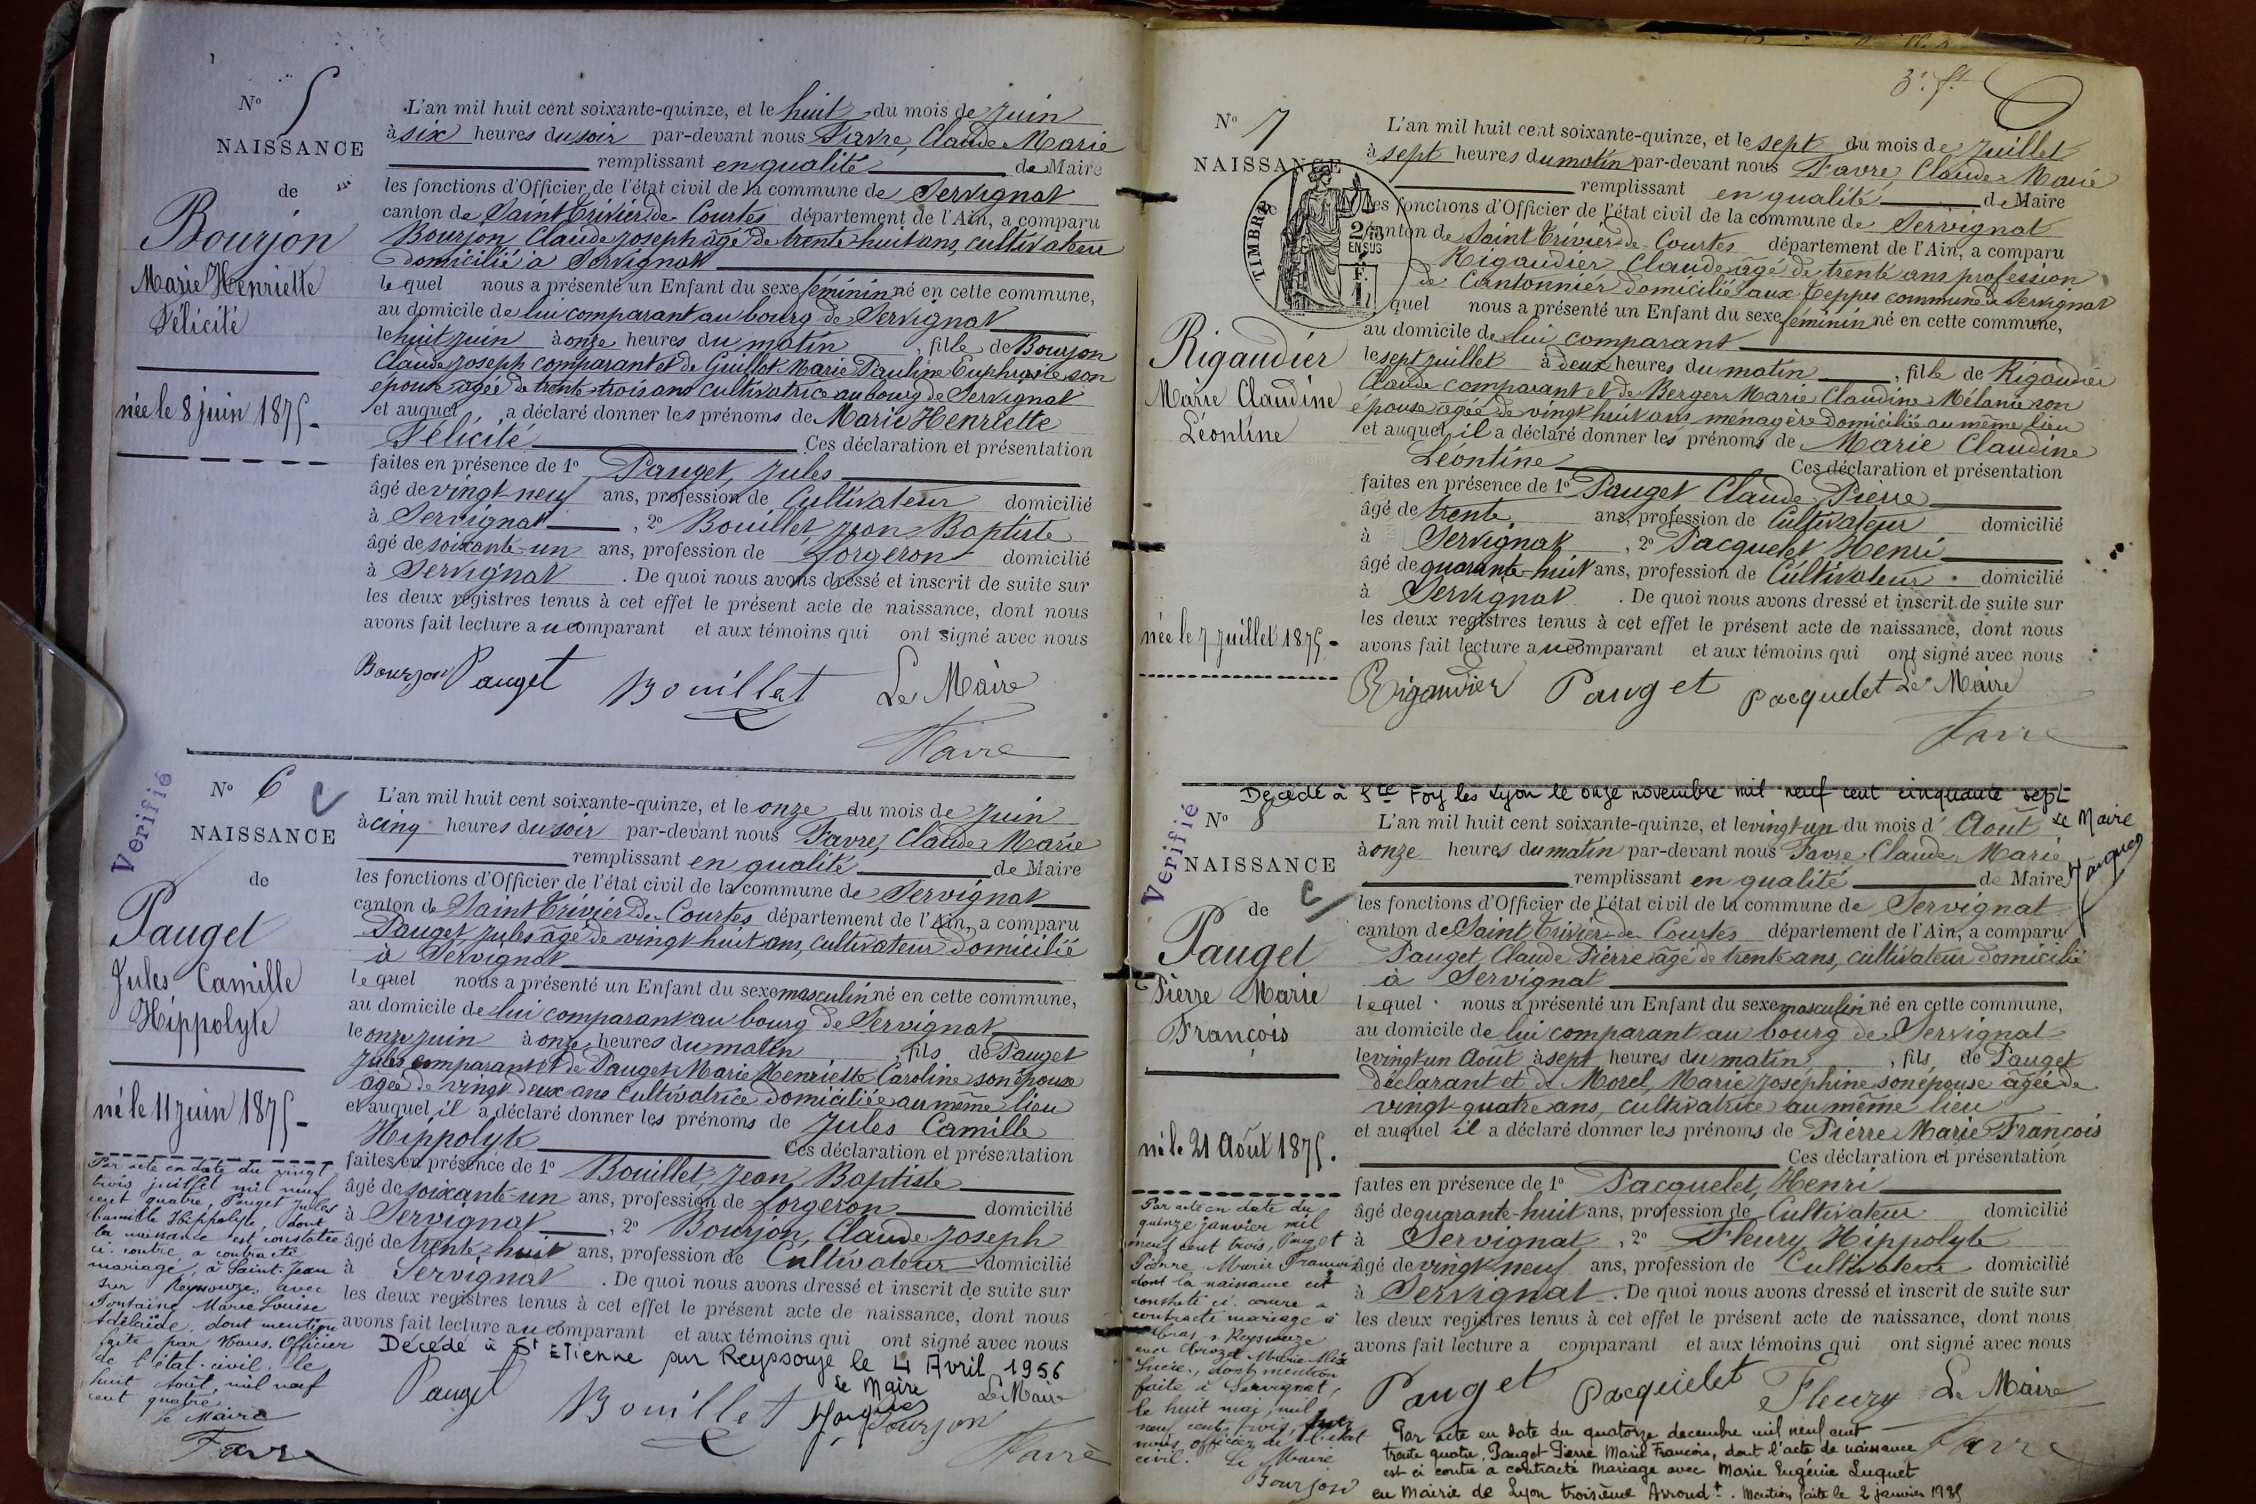 N° 5
NAISSANCE
de
Bourjon
Marie Henriette
Félicité
née le 8 juin 1875
L'an mil huit cent soixante-quinze, et le huit du mois de juin
à six heures du soir par-devant nous Favre, Claude Marie
remplissant en qualité de Maire
les fonctions d'Officier de l'état civil de la commune de Servignat
canton de Saint Trivier de Courtes département de l'Ain, a comparu
Bourjon, Claude Joseph âgé de trente huit ans, cultivateur
domicilié à Servignat
lequel nous a présenté un Enfant du sexe féminin né en cette commune,
au domicile de lui comparant au bourg de Servignat
le huit juin à onze heures du matin fille de Bourjon
Claude Joseph comparant et de Guillot Marie Pauline Euphrasie son
épouse âgée de trente-trois ans cultivatrice au bourg de Servignat
et auquel a déclaré donner les prénoms de Marie Henriette
Félicité Ces déclaration et présentation
faites en présence de 1° Pauget, Jules
âgé de vingt neuf ans, profession de Cultivateur domicilié
à Servignat, 2° Bouillet, Jean Baptiste
âgé de soixante-un ans, profession de forgeron domicilié
à Servignat. De quoi nous avons dressé et inscrit de suite sur
les deux registres tenus à cet effet le présent acte de naissance, dont nous
avons fait lecture au comparant et aux témoins qui ont signé avec nous
Bourjon Pauget Bouillet Le Maire
Favre
Verifié
N° 6
NAISSANCE
de
Pauget
Jules Camille
Hippolyte
né le 11 juin 1875
Par acte en date du vingt
trois juillet mil neuf
cent quatre, Pauget Jules
Camille Hippolyte, dont
la naissance est constatée
ci-contre, a contracté
mariage, à Saint-Jean
sur Reyssouze, avec
Fontaine Marie Louise
Adélaïde, dont mention
faite par Nous, Officier
de l'état-civil, le
huit Août, mil neuf
cent quatre
Le Maire
Favre
L'an mil huit cent soixante-quinze, et le onze du mois de juin
à cinq heures du soir par-devant nous Favre, Claude Marie
remplissant en qualité de Maire
les fonctions d'Officier de l'état civil de la commune de Servignat
canton de Saint Trivier de Courtes département de l'Ain, a comparu
Pauget Jules âgé de vingt huit ans, cultivateur domicilié
à Servignat
lequel nous a présenté un Enfant du sexe masculin né en cette commune,
au domicile de lui comparant au bourg de Servignat
le onze juin à onze heures du matin, fils de Pauget
Jules comparant et de Pauget Marie Henriette Caroline son épouse
âgée de vingt-deux ans cultivatrice domiciliée au même lieu
et auquel il a déclaré donner les prénoms de Jules Camille
Hippolyte Ces déclaration et présentation
faites en présence de 1° Bouillet, Jean Baptiste
âgé de soixante-un ans, profession de forgeron domicilié
à Servignat, 2° Bourjon, Claude Joseph
âgé de trente-huit ans, profession de Cultivateur domicilié
à Servignat. De quoi nous avons dressé et inscrit de suite sur
les deux registres tenus à cet effet le présent acte de naissance, dont nous
avons fait lecture au comparant et aux témoins qui ont signé avec nous
Décédé à St Etienne sur Reyssouze le 4 Avril 1956
Le Maire
Pauget Bouillet Bourjon Le Maire
Favre
3e ft
N° 7
NAISSANCE
TIMBRE
2/10
EN SUS
Rigaudier
Marie Claudine
Léontine
née le 7 juillet 1875
L'an mil huit cent soixante-quinze, et le sept du mois de juillet
à sept heures du matin par-devant nous Favre, Claude Marie
remplissant en qualité de Maire
les fonctions d'Officier de l'état civil de la commune de Servignat
canton de Saint Trivier de Courtes département de l'Ain, a comparu
Rigaudier Claude âgé de trente ans profession
de Cantonnier domicilié aux Teppes commune de Servignat
quel nous a présenté un Enfant du sexe féminin né en cette commune,
au domicile de lui comparant
le sept juillet à deux heures du matin, fille de Rigaudier
Claude comparant et de Berger Marie Claudine Mélanie son
épouse âgée de vingt huit ans, ménagère domiciliée au même lieu
et auquel il a déclaré donner les prénoms de Marie Claudine
Léontine Ces déclaration et présentation
faites en présence de 1° Pauget Claude Pierre
âgé de trente ans, profession de Cultivateur domicilié
à Servignat, 2° Pacquelet Henri
âgé de quarante-huit ans, profession de Cultivateur domicilié
à Servignat. De quoi nous avons dressé et inscrit de suite sur
les deux registres tenus à cet effet le présent acte de naissance, dont nous
avons fait lecture au comparant et aux témoins qui ont signé avec nous
Rigaudier Pauget Pacquelet Le Maire
Favre
Décédé à Ste Foy les Lyon le onze novembre mil neuf cent cinquante sept
Le Maire
Verifié
N° 8
NAISSANCE
de
Pauget
Pierre Marie
François
né le 21 Août 1875.
Par acte en date du
quinze janvier mil
neuf cent trois, Pauget
Pierre Marie François
dont la naissance est
constatée ci-contre a
contracté mariage à
Reyssouze
avec Marie Alix
Lucie, dont mention
faite à Servignat,
le huit mai mil
neuf cent trois, par
nous officier de l'état
civil. Le Maire
Bourjon
L'an mil huit cent soixante-quinze, et le vingt-un du mois d'Août
à onze heures du matin par-devant nous Favre Claude Marie
remplissant en qualité de Maire
les fonctions d'Officier de l'état civil de la commune de Servignat
canton de Saint Trivier de Courtes département de l'Ain, a comparu
Pauget, Claude Pierre âgé de trente ans, cultivateur domicilié
à Servignat
lequel nous a présenté un Enfant du sexe masculin né en cette commune,
au domicile de lui comparant au bourg de Servignat
le vingt-un Août à sept heures du matin, fils de Pauget
déclarant et de Morel, Marie Joséphine son épouse âgée de
vingt-quatre ans, cultivatrice au même lieu
et auquel il a déclaré donner les prénoms de Pierre Marie François
Ces déclaration et présentation
faites en présence de 1° Pacquelet, Henri
âgé de quarante-huit ans, profession de Cultivateur domicilié
à Servignat, 2° Fleury Hippolyte
âgé de vingt neuf ans, profession de Cultivateur domicilié
à Servignat. De quoi nous avons dressé et inscrit de suite sur
les deux registres tenus à cet effet le présent acte de naissance, dont nous
avons fait lecture a comparant et aux témoins qui ont signé avec nous
Pauget Pacquelet Fleury Le Maire
Favre
Par acte en date du quatorze decembre mil neuf cent
trente quatre, Pauget Pierre Marie François, dont l'acte de naissance
est ci contre a contracté mariage avec Marie Eugénie Luquet
en Mairie de Lyon troisième Arrondt. Mention faite le 2 janvier 1935